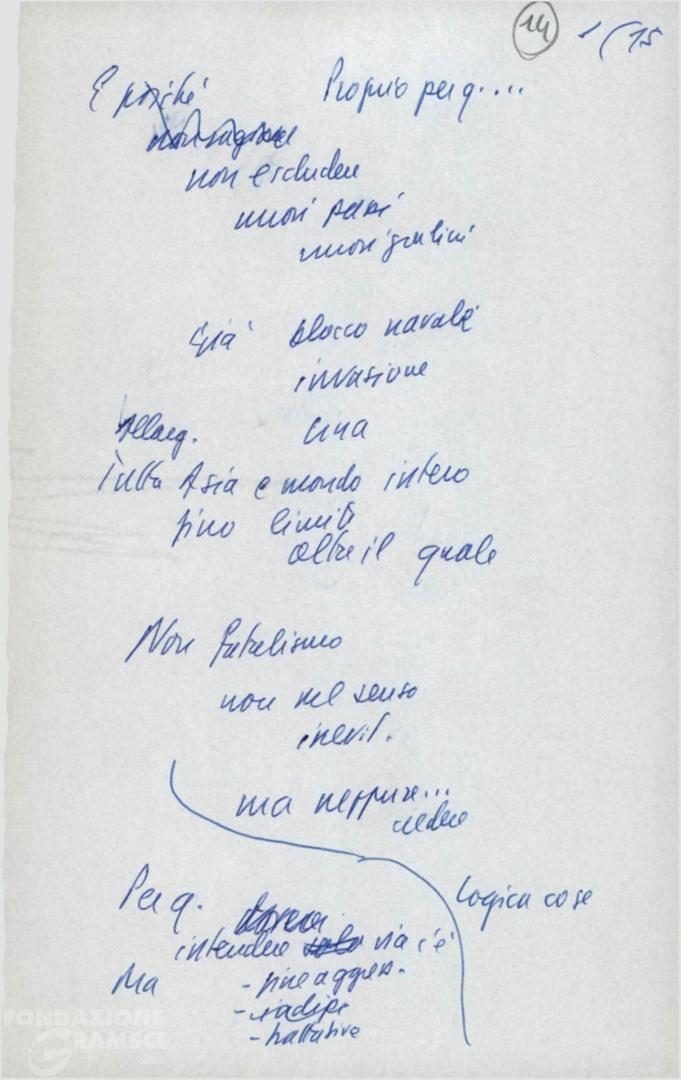 14 1/15
E poiché Proprio per q....
non escludere
nuovi passi
nuovi gradini
Già blocco navale
invasione
Allarg. Cina
Tutta Asia e mondo intero
fino limite
oltre il quale
Non fatalismo
non nel senso
inevit.
ma neppure...
credere
Logica cose
Per q.
intendere solo via c'è
Ma - fine aggress.
- radici
- trattative
FONDAZIONE
GRAMSCI